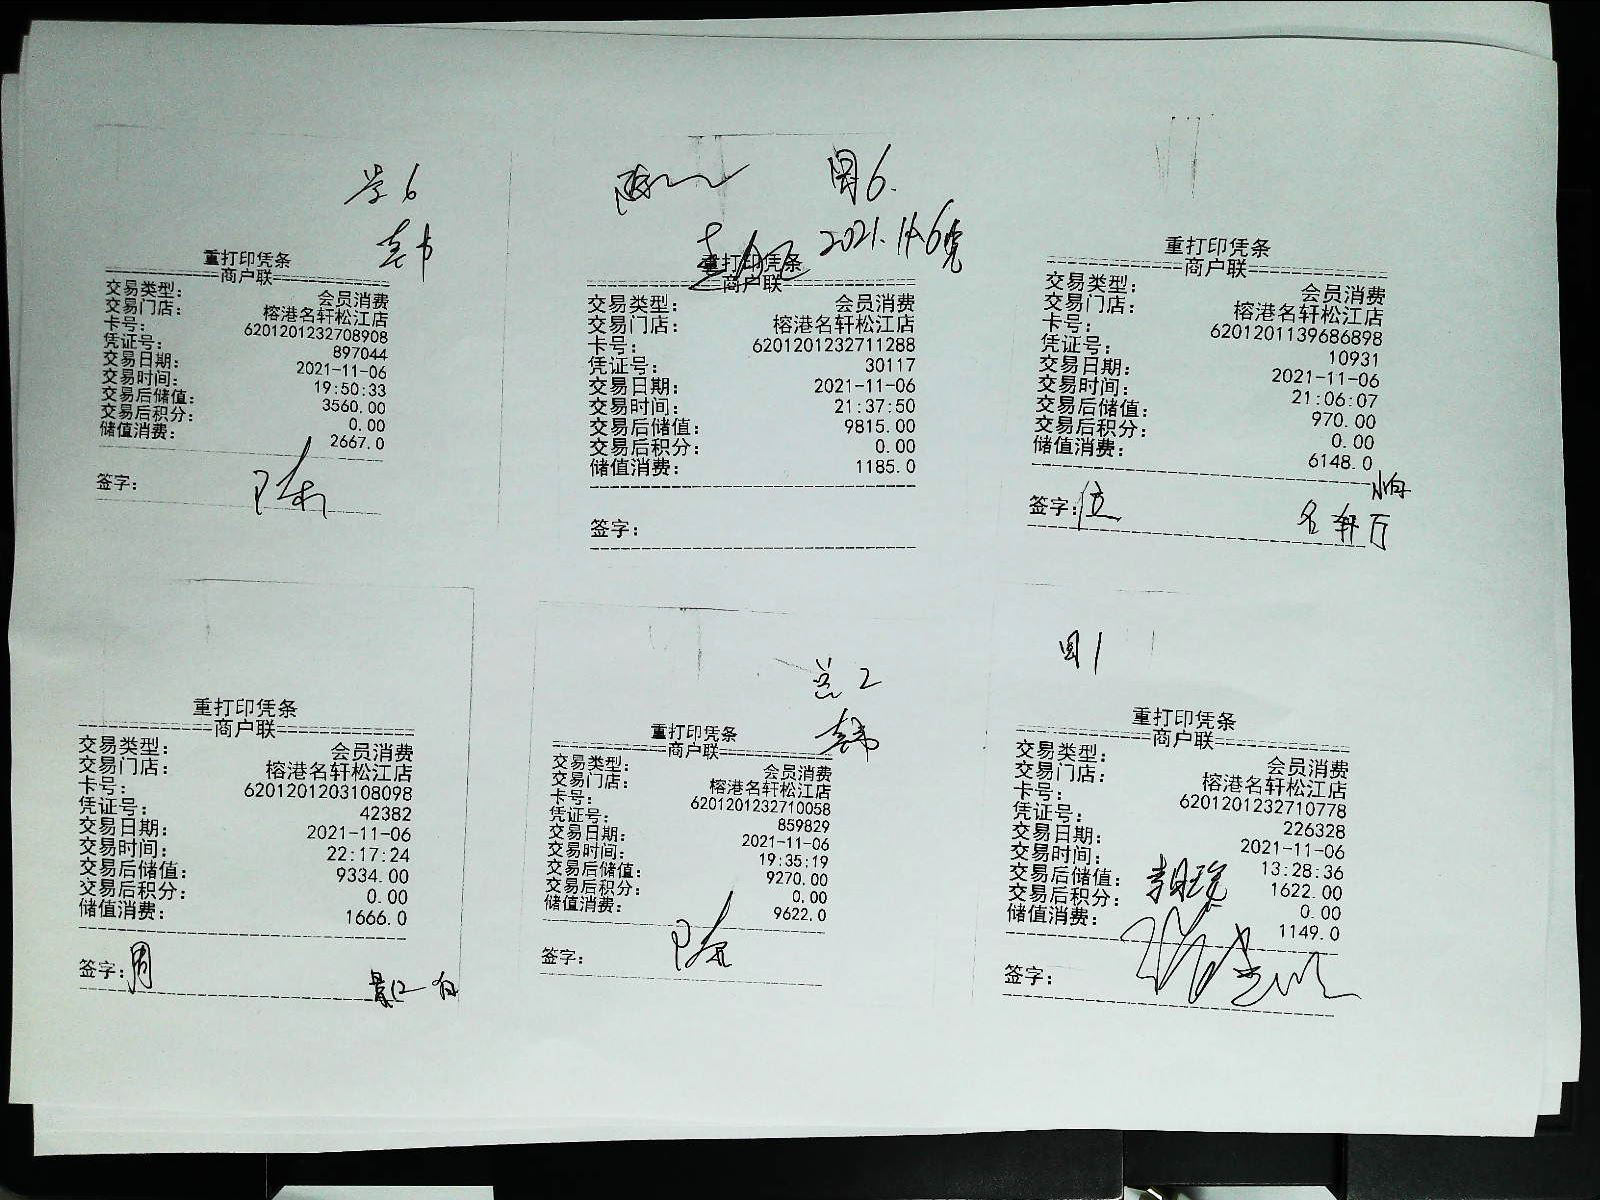 重打印凭条
商户联
交易类型: 会员消费
交易门店: 榕港名轩松江店
卡号: 6201201232708908
凭证号: 897044
交易日期: 2021-11-06
交易时间: 19:50:33
交易后储值: 3560.00
交易后积分: 0.00
储值消费: 2667.0
签字:
周6.
2021.11.6号
重打印凭条
商户联
交易类型: 会员消费
交易门店: 榕港名轩松江店
卡号: 6201201232711288
凭证号: 30117
交易日期: 2021-11-06
交易时间: 21:37:50
交易后储值: 9815.00
交易后积分: 0.00
储值消费: 1185.0
签字:
重打印凭条
商户联
交易类型: 会员消费
交易门店: 榕港名轩松江店
卡号: 6201201139686898
凭证号: 10931
交易日期: 2021-11-06
交易时间: 21:06:07
交易后储值: 970.00
交易后积分: 0.00
储值消费: 6148.0
签字:
名轩厅
重打印凭条
商户联
交易类型: 会员消费
交易门店: 榕港名轩松江店
卡号: 6201201203108098
凭证号: 42382
交易日期: 2021-11-06
交易时间: 22:17:24
交易后储值: 9334.00
交易后积分: 0.00
储值消费: 1666.0
签字: 周
重打印凭条
商户联
交易类型: 会员消费
交易门店: 榕港名轩松江店
卡号: 6201201232710058
凭证号: 859829
交易日期: 2021-11-06
交易时间: 19:35:19
交易后储值: 9270.00
交易后积分: 0.00
储值消费: 9622.0
签字:
重打印凭条
商户联
交易类型: 会员消费
交易门店: 榕港名轩松江店
卡号: 6201201232710778
凭证号: 226328
交易日期: 2021-11-06
交易时间: 13:28:36
交易后储值: 1622.00
交易后积分: 0.00
储值消费: 1149.0
签字: